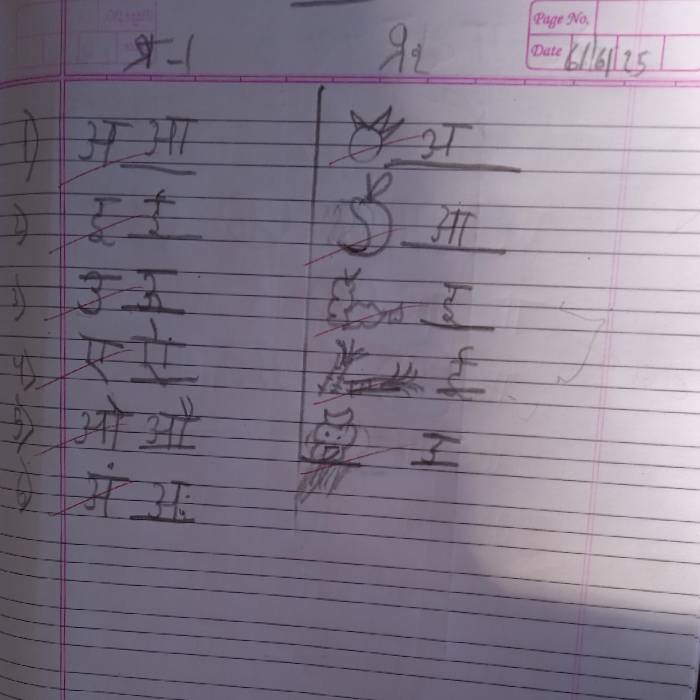 Page No.
Date 6/6/25
प्र-1 प्र2
1) अ आ अ
2) इ ई आ
3) उ ऊ इ
4) ए ऐ ई
5) ओ औ उ
6) अं अः